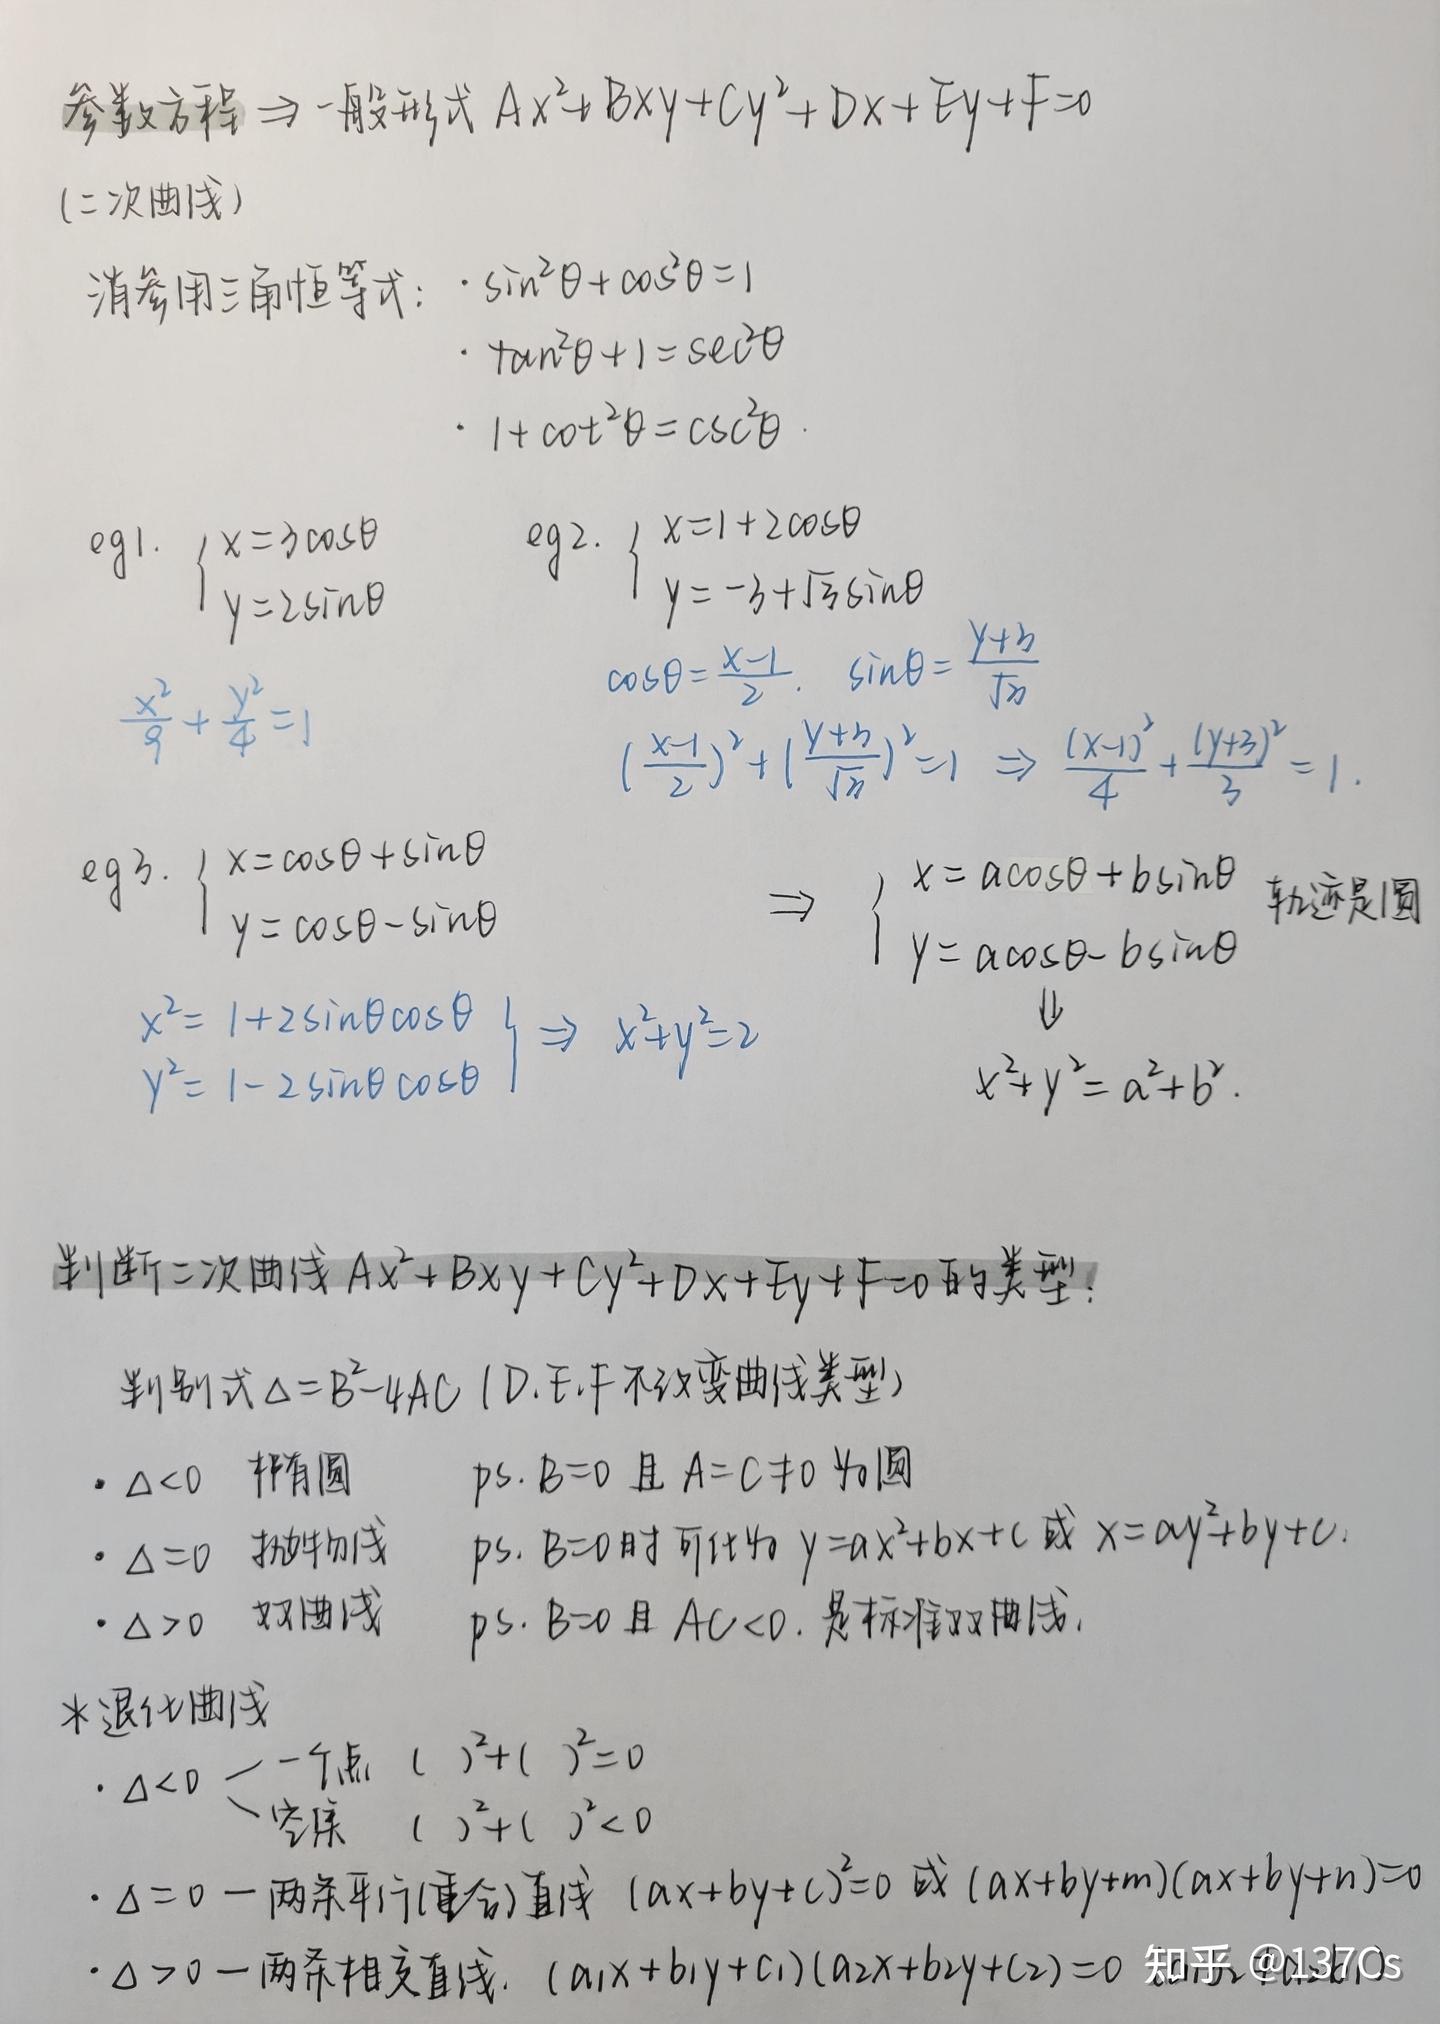 参数方程 ⇒ 一般形式 Ax²+Bxy+Cy²+Dx+Ey+F=0
(二次曲线)
消参用三角恒等式: · sin²θ+cos²θ=1
· tan²θ+1=sec²θ
· 1+cot²θ=csc²θ.
eg1. { x=3cosθ
y=2sinθ
x²/9 + y²/4 = 1
eg2. { x=1+2cosθ
y=-3+√3sinθ
cosθ=(x-1)/2. sinθ=(y+3)/√3
((x-1)/2)²+((y+3)/√3)²=1 ⇒ (x-1)²/4 + (y+3)²/3 = 1.
eg3. { x=cosθ+sinθ
y=cosθ-sinθ
x²=1+2sinθcosθ
y²=1-2sinθcosθ } ⇒ x²+y²=2
⇒ { x=acosθ+bsinθ 轨迹是圆
y=acosθ-bsinθ
⇓
x²+y²=a²+b².
判断二次曲线 Ax²+Bxy+Cy²+Dx+Ey+F=0 的类型:
判别式 Δ=B²-4AC (D.E.F不改变曲线类型)
· Δ<0 椭圆 ps. B=0 且 A=C≠0 为圆
· Δ=0 抛物线 ps. B=0时可化为 y=ax²+bx+c 或 x=ay²+by+c.
· Δ>0 双曲线 ps. B=0 且 AC<0. 是标准双曲线.
*退化曲线
· Δ<0 一个点 ( )²+( )²=0
空集 ( )²+( )²<0
· Δ=0 — 两条平行(重合)直线 (ax+by+c)²=0 或 (ax+by+m)(ax+by+n)=0
· Δ>0 — 两条相交直线. (a₁x+b₁y+c₁)(a₂x+b₂y+c₂)=0
知乎 @137Cs